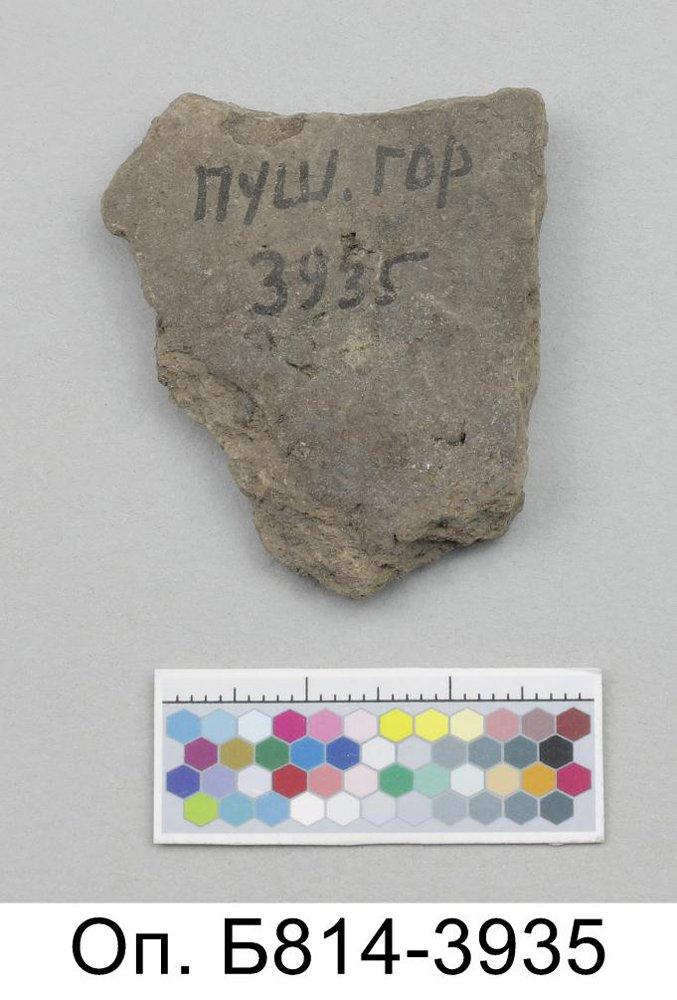 ПУШ. ГОР
3935
Оп. Б814-3935